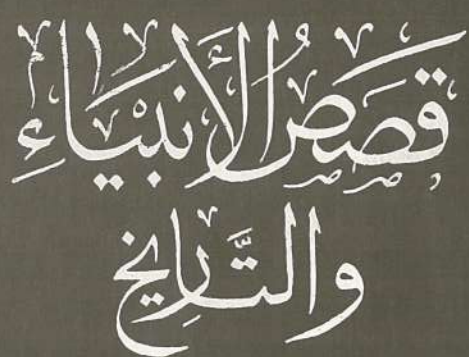 قصص الأنبياء
والتاريخ